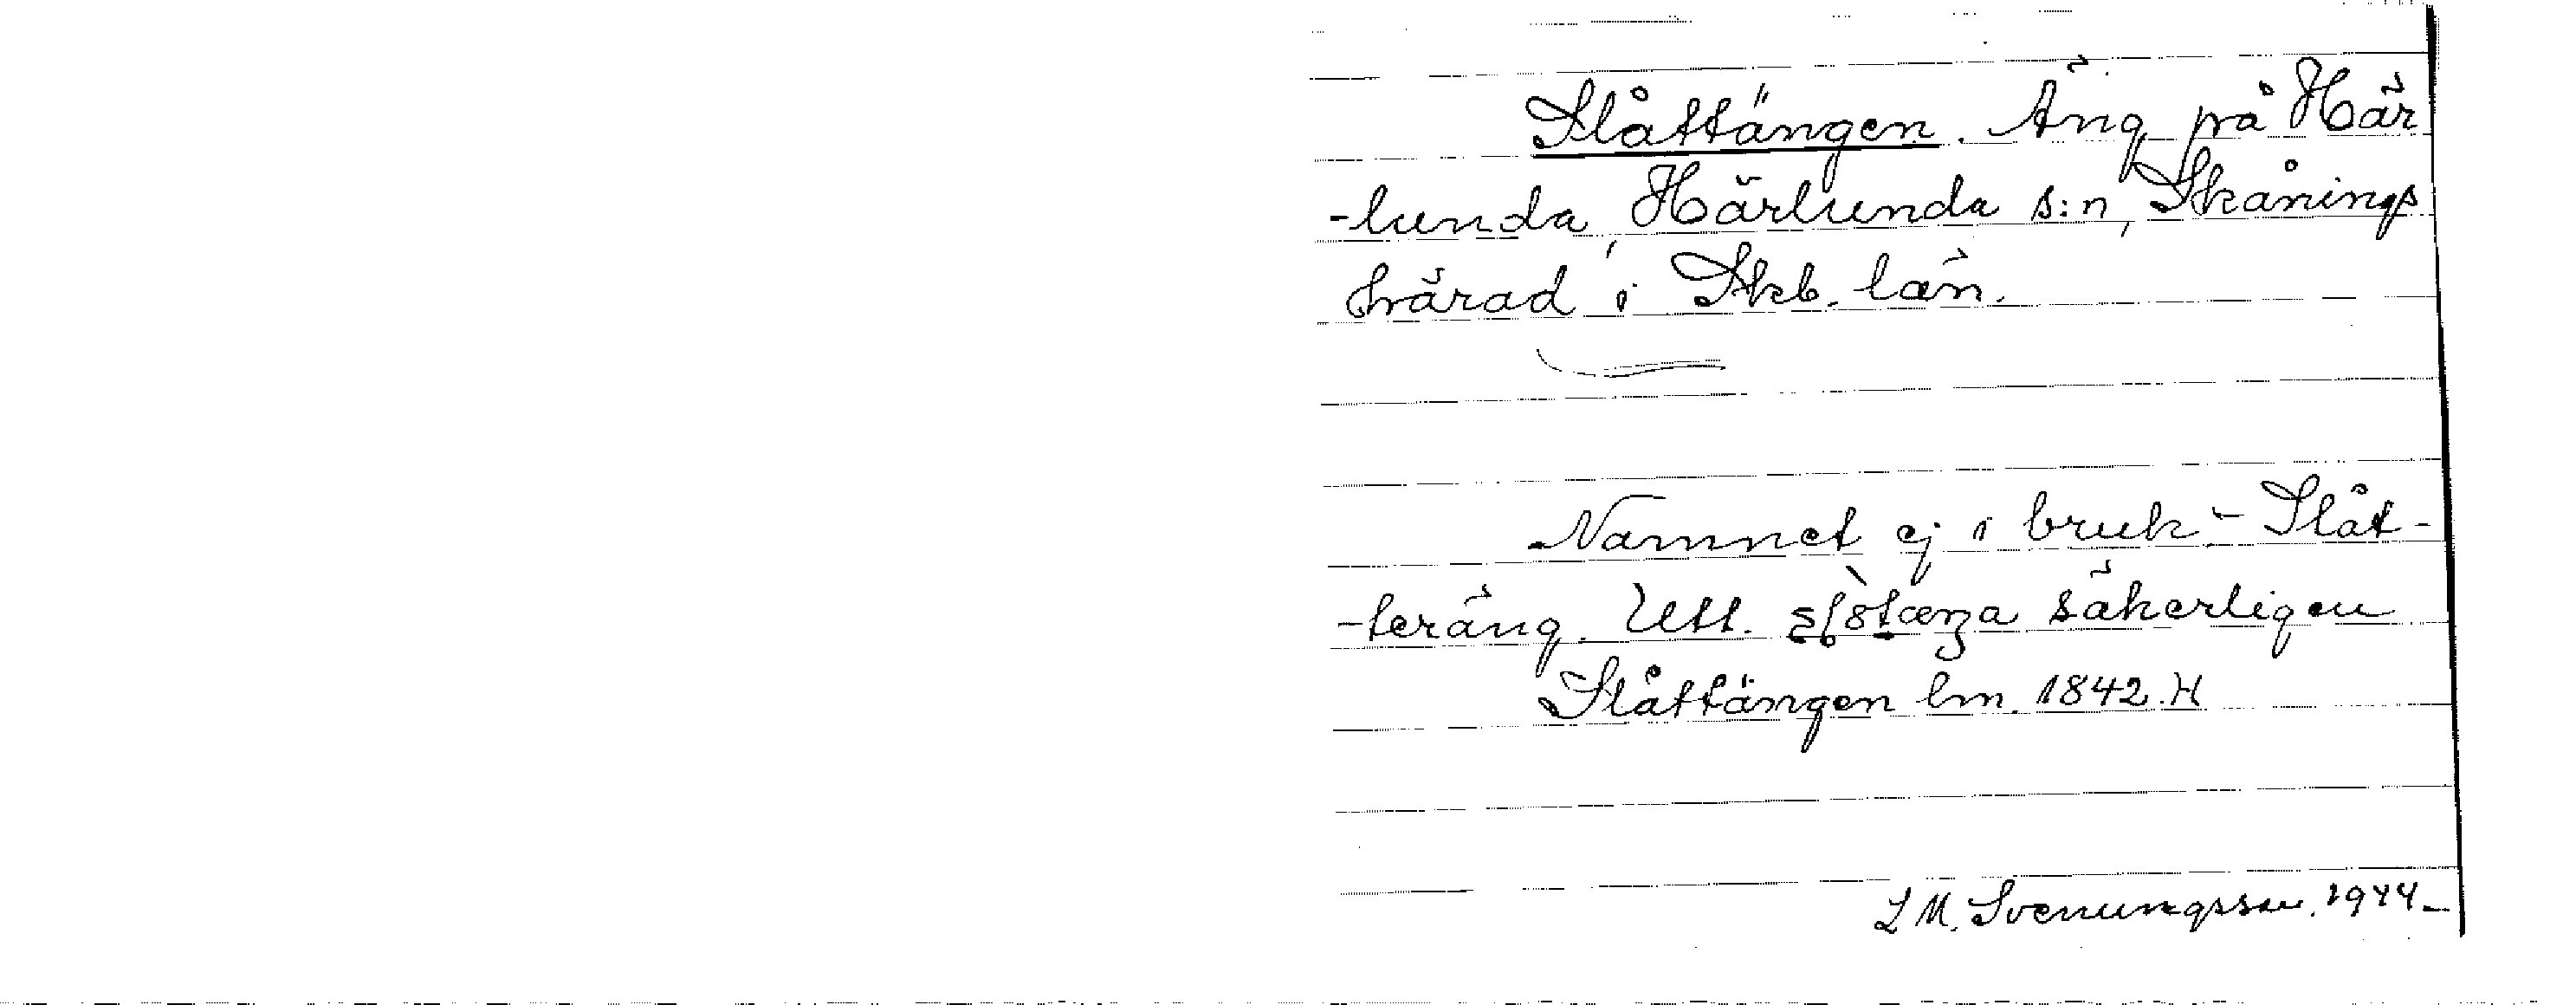 Slåttängen. Äng på Här
-lunda, Härlunda s:n, Skånings
härad i Skb. län.
Namnet ej i bruk - Slåt-
-teräng. Utt. säkerligen
Slåttängen lm. 1842. H
L M. Svenungsson. 1944-